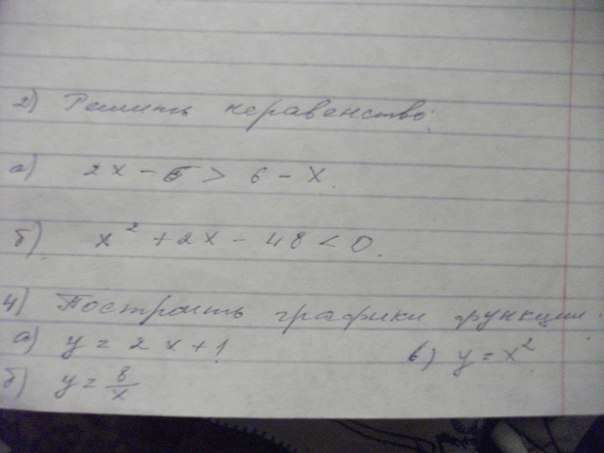 2) Решить неравенство:
а) 2x - 5 > 6 - x.
б) x² + 2x - 48 < 0.
4) Построить графики функции.
а) y = 2x + 1 в) y = x²
б) y = 8/x